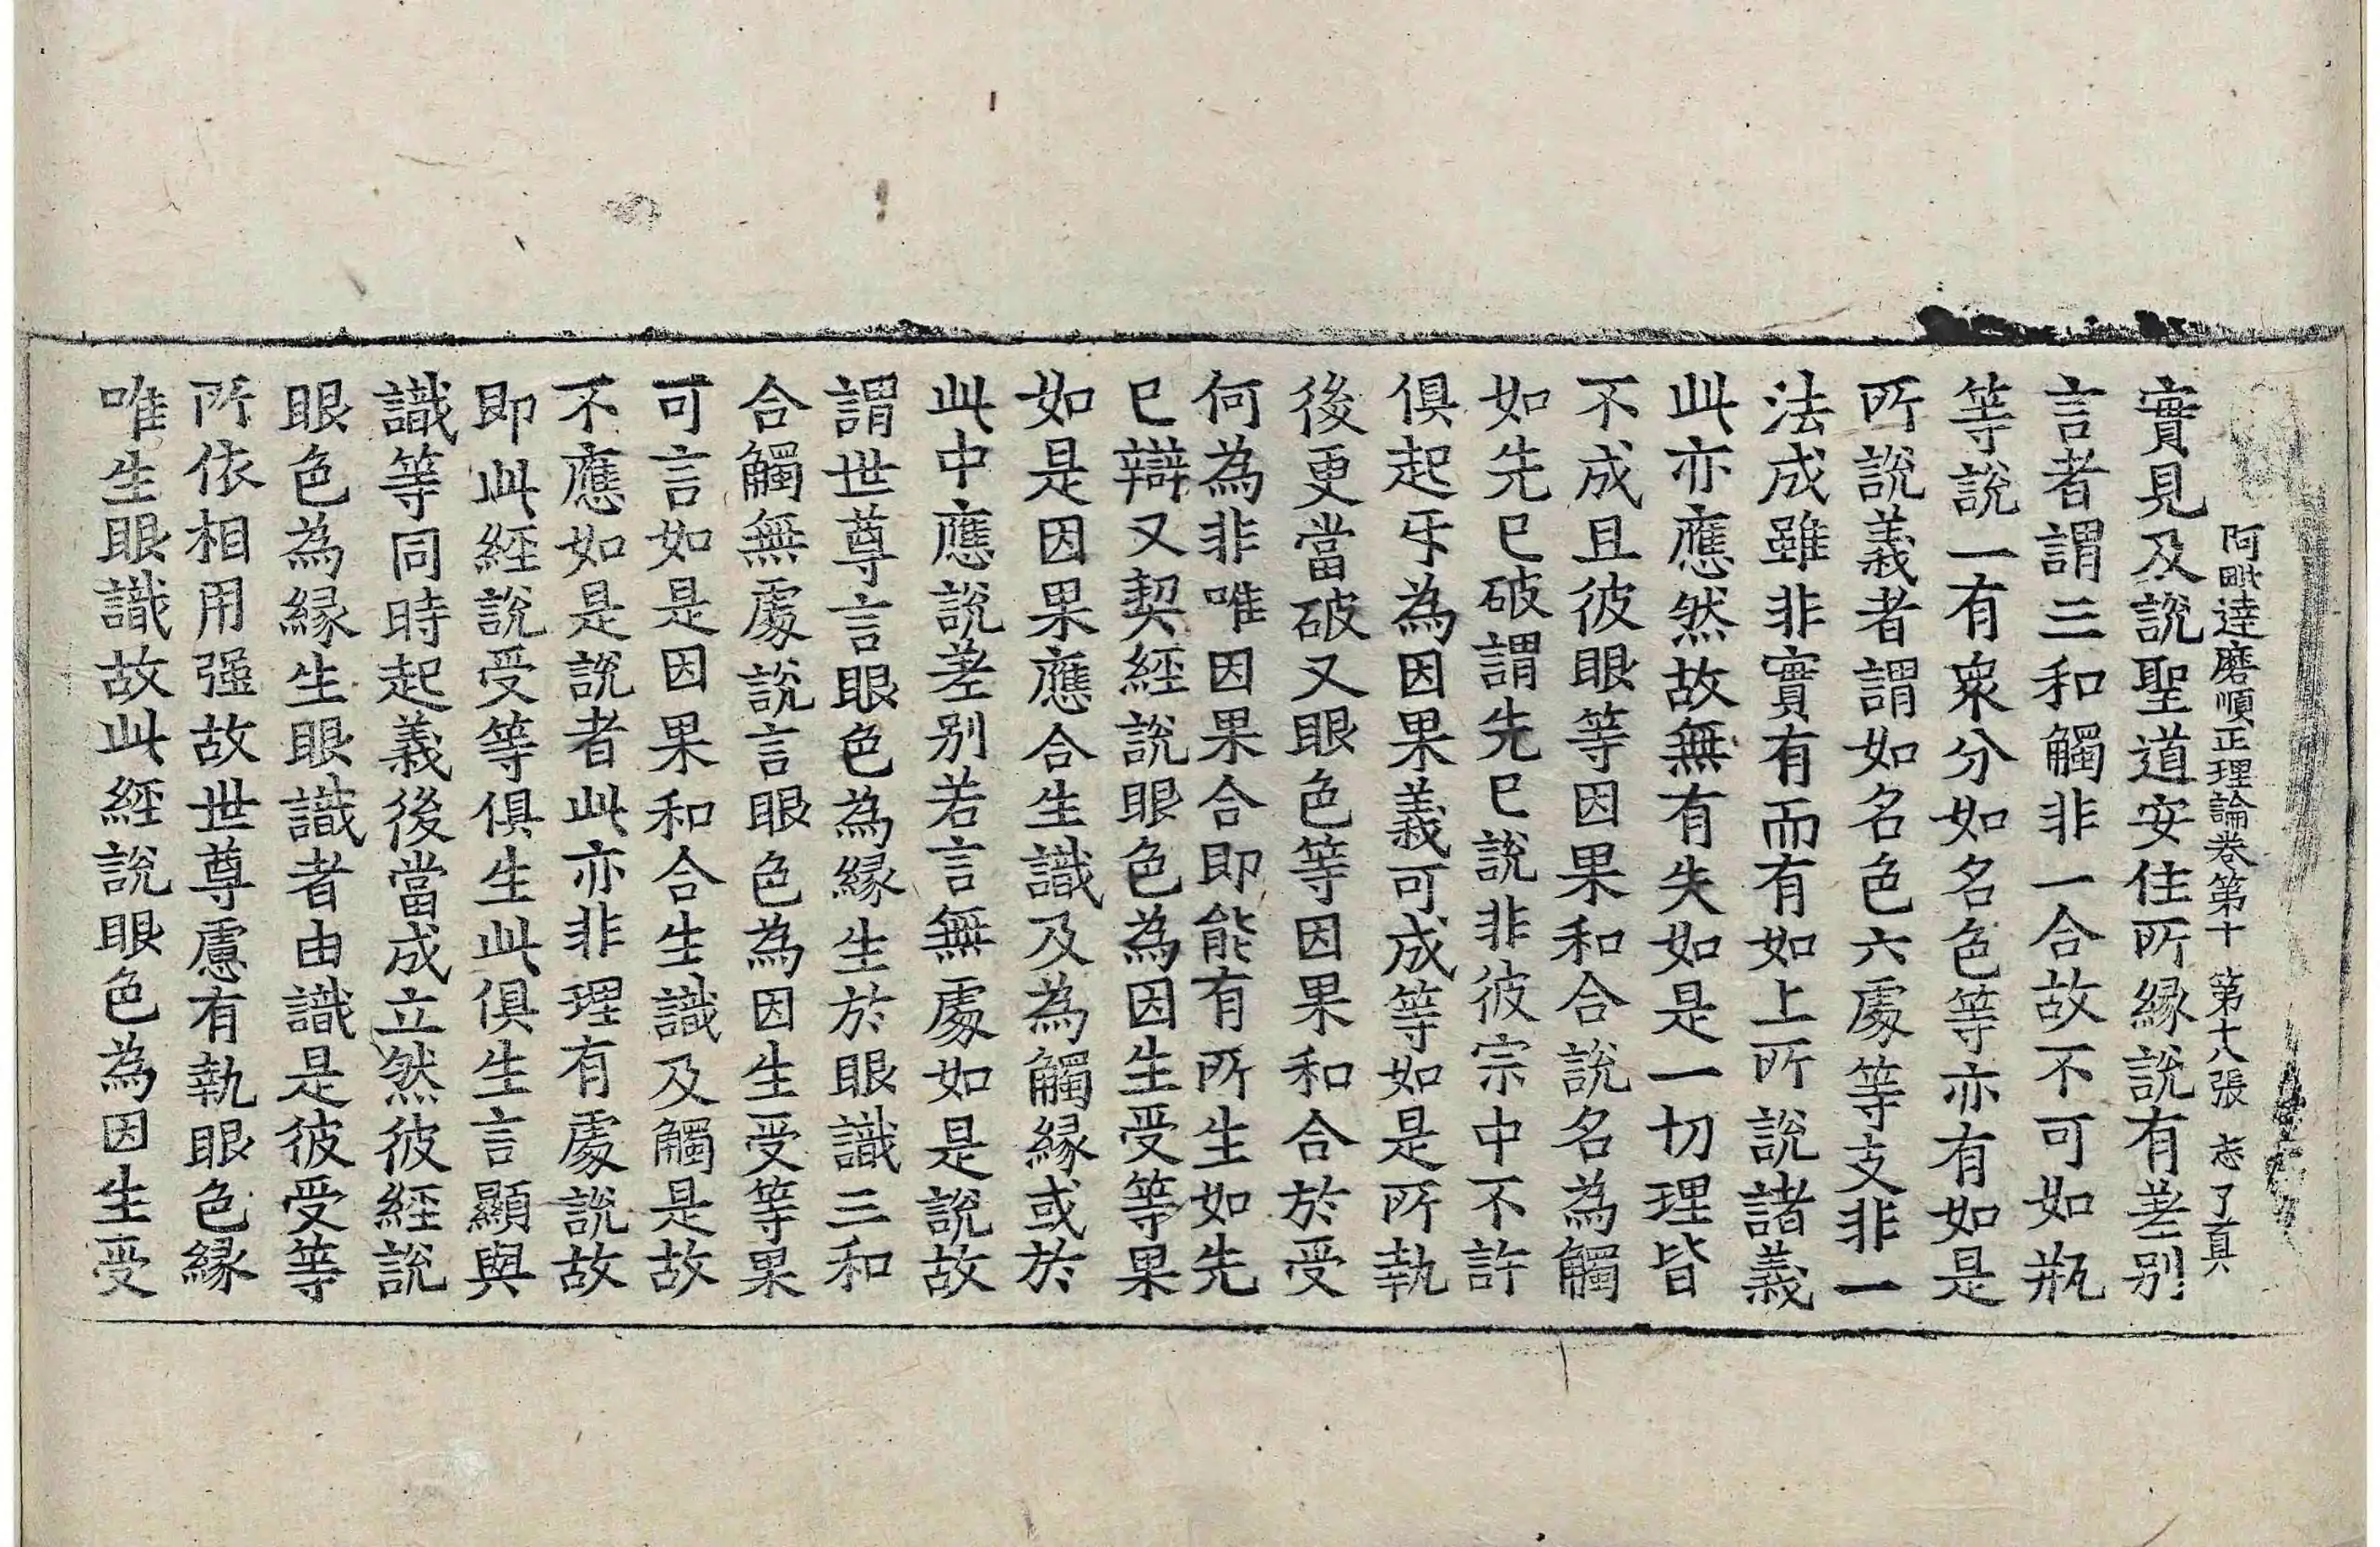 阿毗達磨順正理論卷第十 第十八張 志 了真
實見及說聖道安住所緣說有差別
言者謂三和觸非一合故不可如瓶
等說一有衆分如名色等亦有如是
所說義者謂如名色六處等支非一
法成雖非實有而有如上所說諸義
此亦應然故無有失如是一切理皆
不成且彼眼等因果和合說名為觸
如先已破謂先已說非彼宗中不許
俱起㸦為因果義可成等如是所執
後更當破又眼色等因果和合於受
何為非唯因果合即能有所生如先
已辯又契經說眼色為因生受等果
如是因果應合生識及為觸緣或於
此中應說差別若言無處如是說故
謂世尊言眼色為緣生於眼識三和
合觸無處說言眼色為因生受等果
可言如是因果和合生識及觸是故
不應如是說者此亦非理有處說故
即此經說受等俱生此俱生言顯與
識等同時起義後當成立然彼經說
眼色為緣生眼識者由識是彼受等
所依相用强故世尊慮有執眼色緣
唯生眼識故此經說眼色為因生受